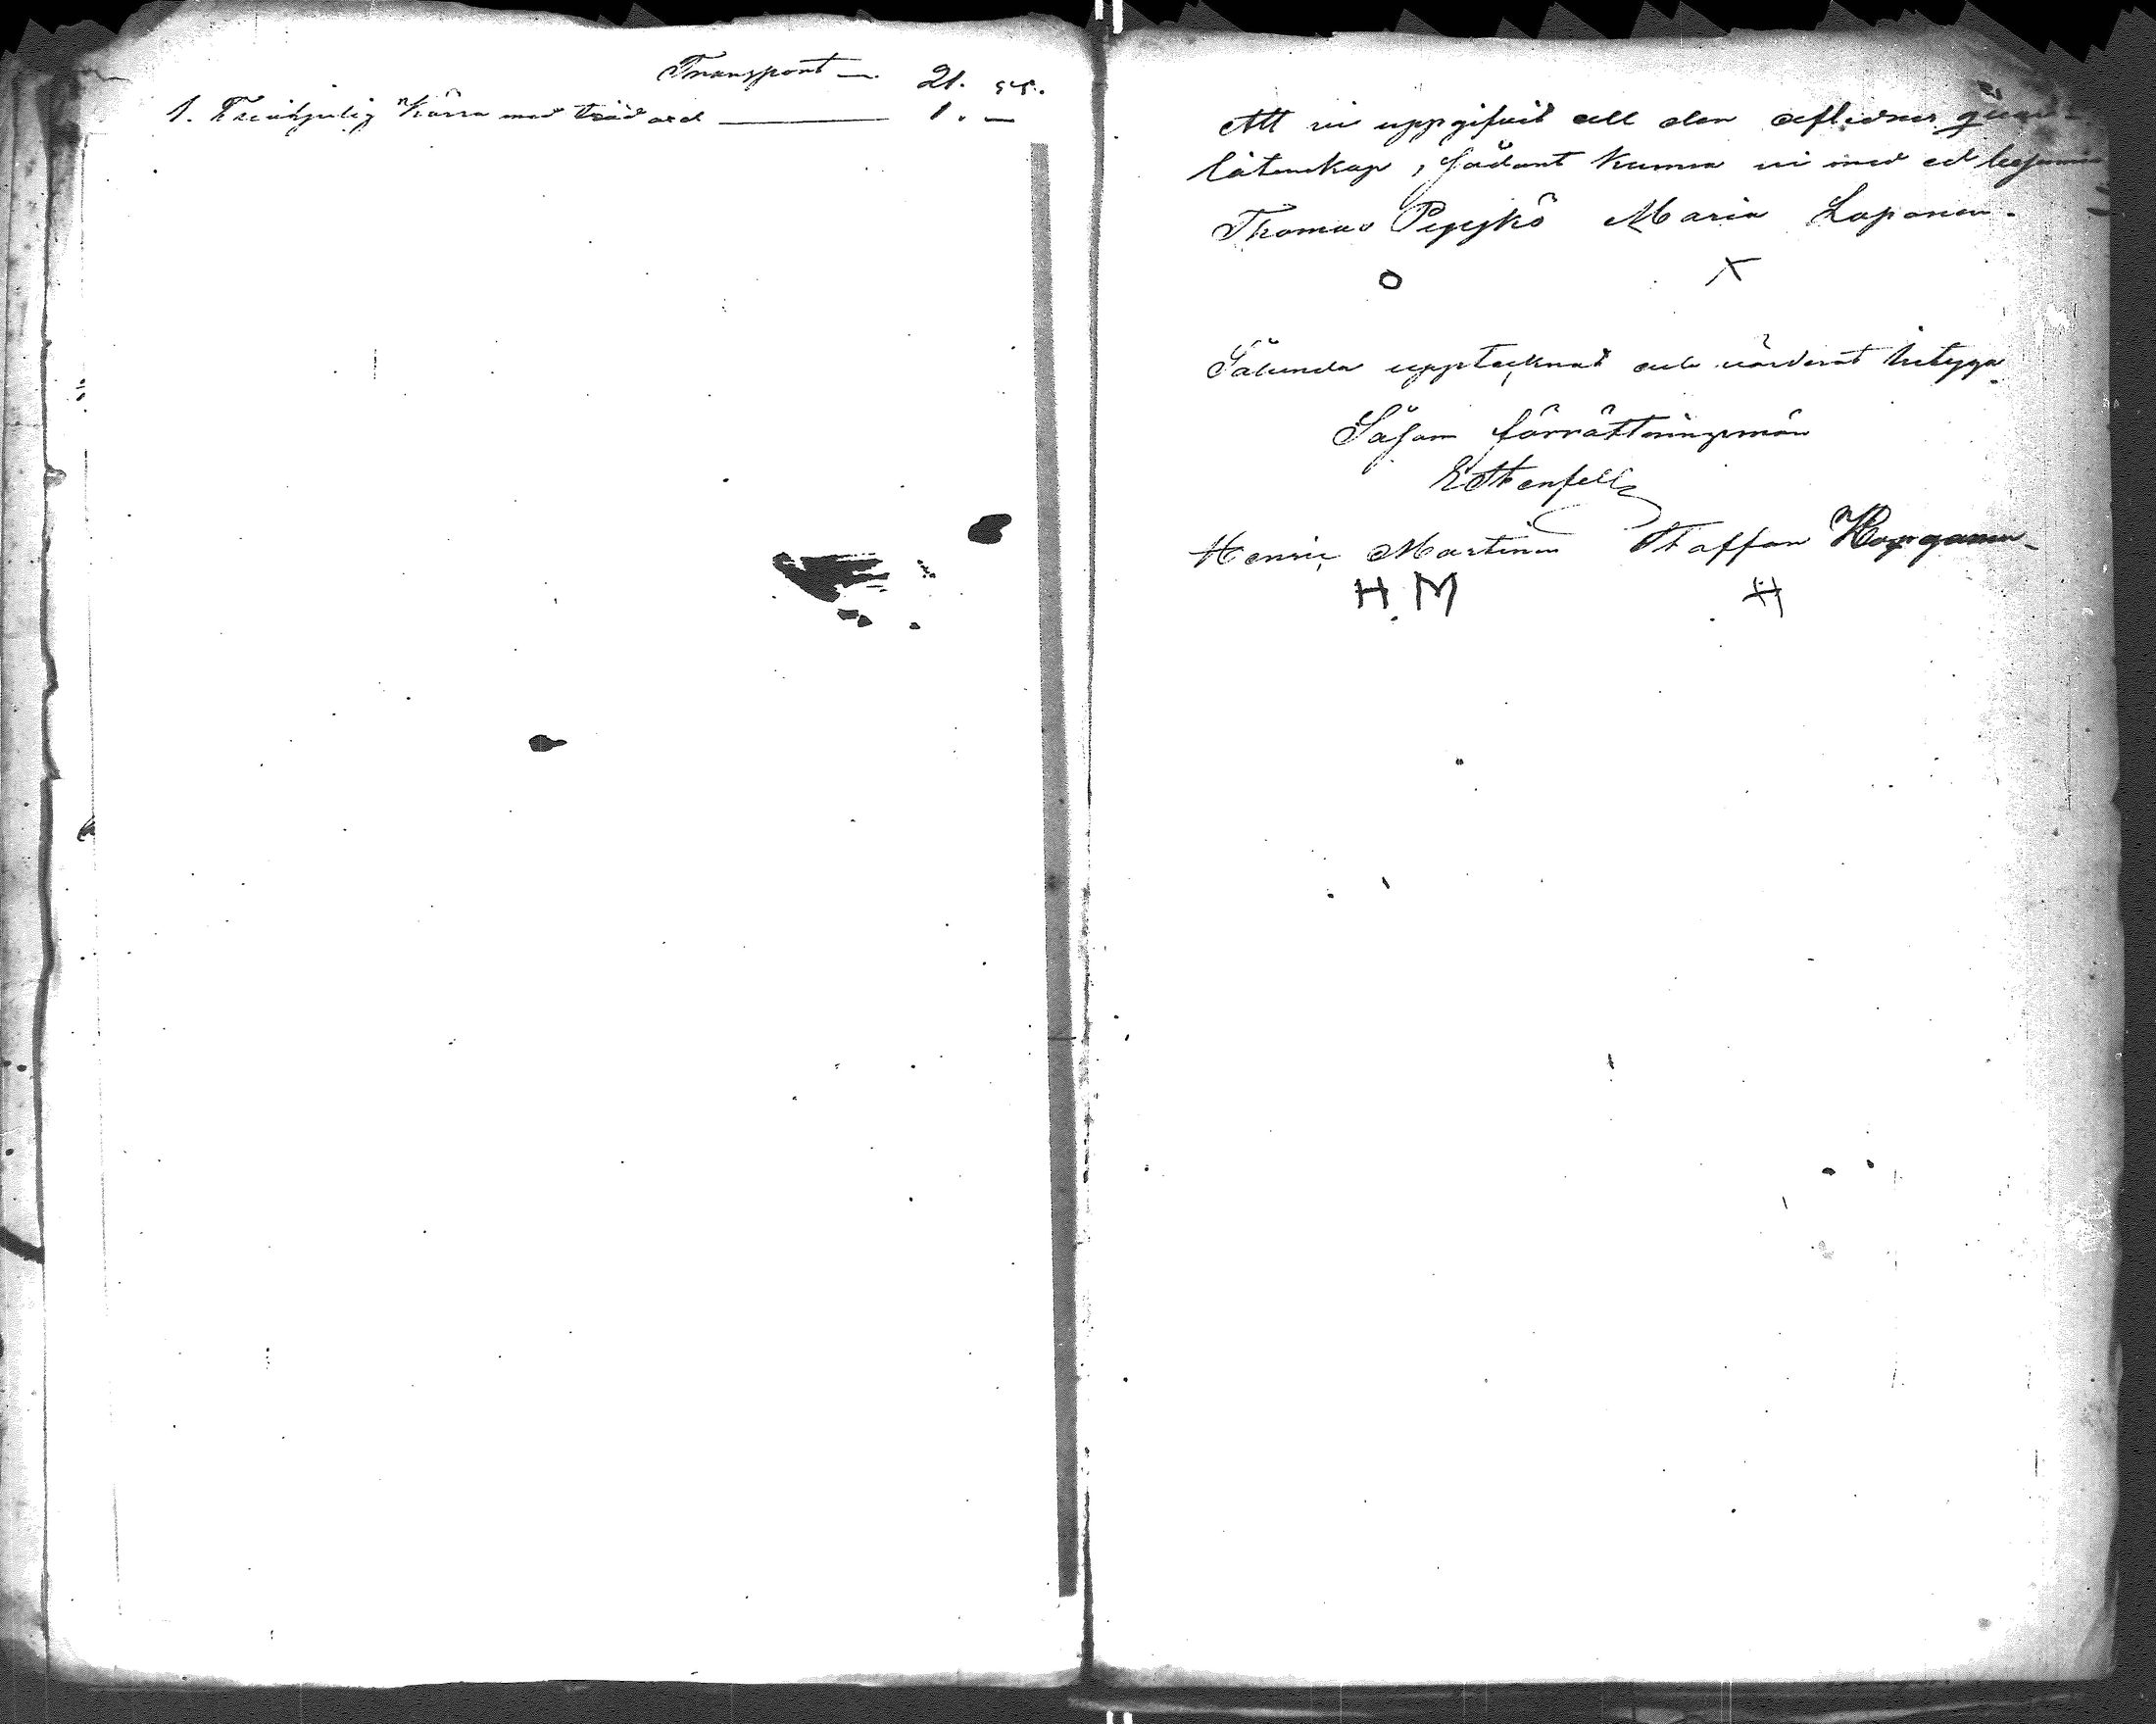 Transport — 21. 55.
1. Tvåhjulig Kärra med träd axel — 1. —
Att vi uppgifvit all den aflidnes qvar-
låtenskap, sådant kunna vi med ed besanna
Thomas Pyykö Maria Loponen.
O X
Sålunda upptecknat och värderat betyga
Såsom förrättningsmän
Henric Martinen Staffan
H. M H